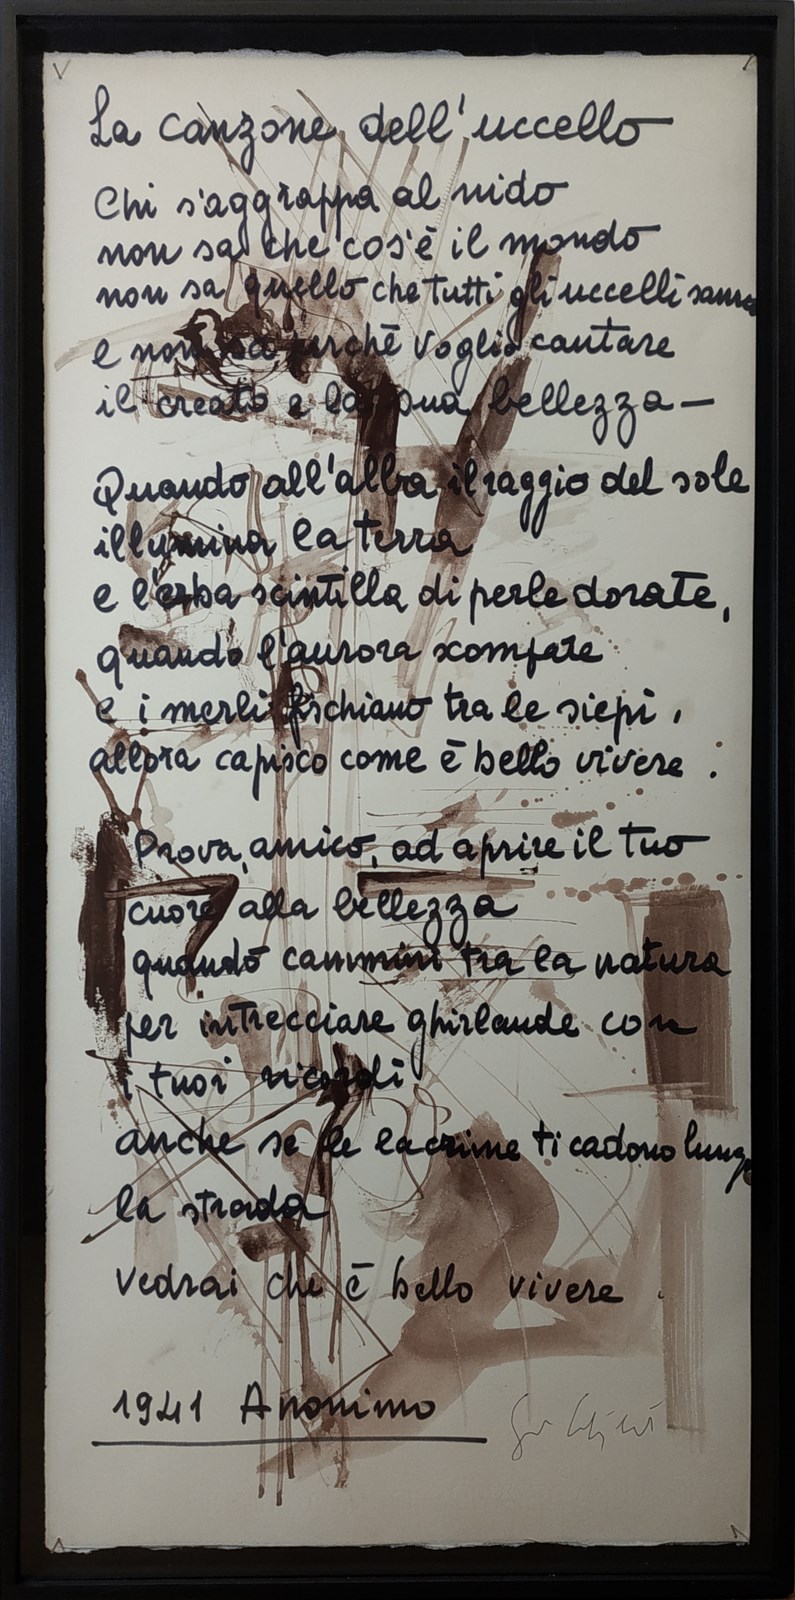 La canzone dell'uccello
Chi s'aggrappa al nido
non sa che cos'è il mondo
non sa quello che tutti gli uccelli sanno
e non sa perchè voglio cantare
il creato e la sua bellezza —
Quando all'alba il raggio del sole
illumina la terra
e l'erba scintilla di perle dorate,
quando l'aurora scompare
e i merli fischiano tra le siepi,
allora capisco come è bello vivere.
Prova, amico, ad aprire il tuo
cuore alla bellezza
quando cammini tra la natura
per intrecciare ghirlande con
i tuoi ricordi
anche se le lacrime ti cadono lungo
la strada
vedrai che è bello vivere.
1941 Anonimo